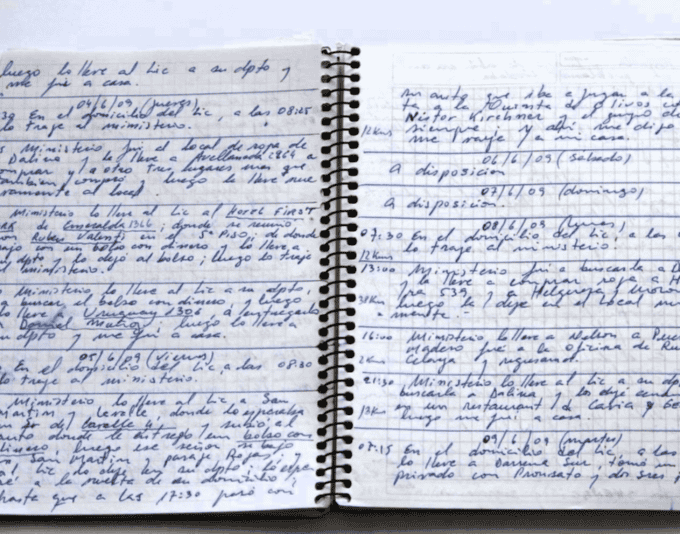 luego lo lleve al Lic a su dpto y
me fui a casa.
04/6/09 (jueves)
30 En el domicilio del Lic, a las 08:25
lo traje al ministerio.
Ministerio, fui al local de ropa de
Dalina y la lleve a Avellaneda a
comprar y a otro tres lugares mas que
tambien compró, luego la lleve nue
vamente al local
Ministerio lo lleve al Lic al Hotel First
de Esmeralda 1366; donde se reunió
Ruben Valenti en 5° Piso, de donde
bajo con un bolso con dinero y lo lleve a
dpto y lo dejó al bolso; luego lo traje
al ministerio.
Ministerio lo lleve al Lic a su dpto,
a buscar el bolso con dinero y luego
lo lleve Uruguay 1306, a entregarlo
a Daniel Muñoz, luego lo lleve a
su dpto y me fui a casa.
05/6/09 (viernes)
En el domicilio del Lic, a las 08:30
lo traje al ministerio.
Ministerio lo lleve al Lic a San
Martin y Lavalle, donde lo esperaba
de Lavalle y subió al
auto donde le entregó un bolso con
dinero, luego ese señor se bajo
San Martin pasaje Rojas y
al Lic lo deje en su dpto; lo espe
ré a la vuelta de su domicilio,
hasta que a las 17:30 paró con
mi auto que iba a jugar a la
ta a la Quinta de Olivos con
Néstor Kirchner y el grupo de
siempre y ahi me dijo
me traje a mi casa.
12Kms
06/6/09 (sabado)
A disposicion
07/6/09 (domingo)
A disposicion.
08/6/09 (lunes)
07:30 En el domicilio del Lic, a las
lo traje al ministerio.
12Kms
13:00 Ministerio fui a buscarla a D
y la lleve a comprar ropa a H
ra 539, a Helguera y Moron
38Kms luego la deje en el local nue
mente.-
16:00 Ministerio lo lleve a Nelson a Puer
Madero fue a la oficina de Ru
2Kms Celaya y regresamos.
21:30 Ministerio lo lleve al Lic a su dp
buscarla a Dalina y los deje cenan
en un restaurant de Cavia y
13Km luego me fui a casa.
09/6/09 (martes)
07:15 En el domicilio del Lic, a las
lo lleve a Barrena Sur, tomó un
privado con Pronsato y dos sres